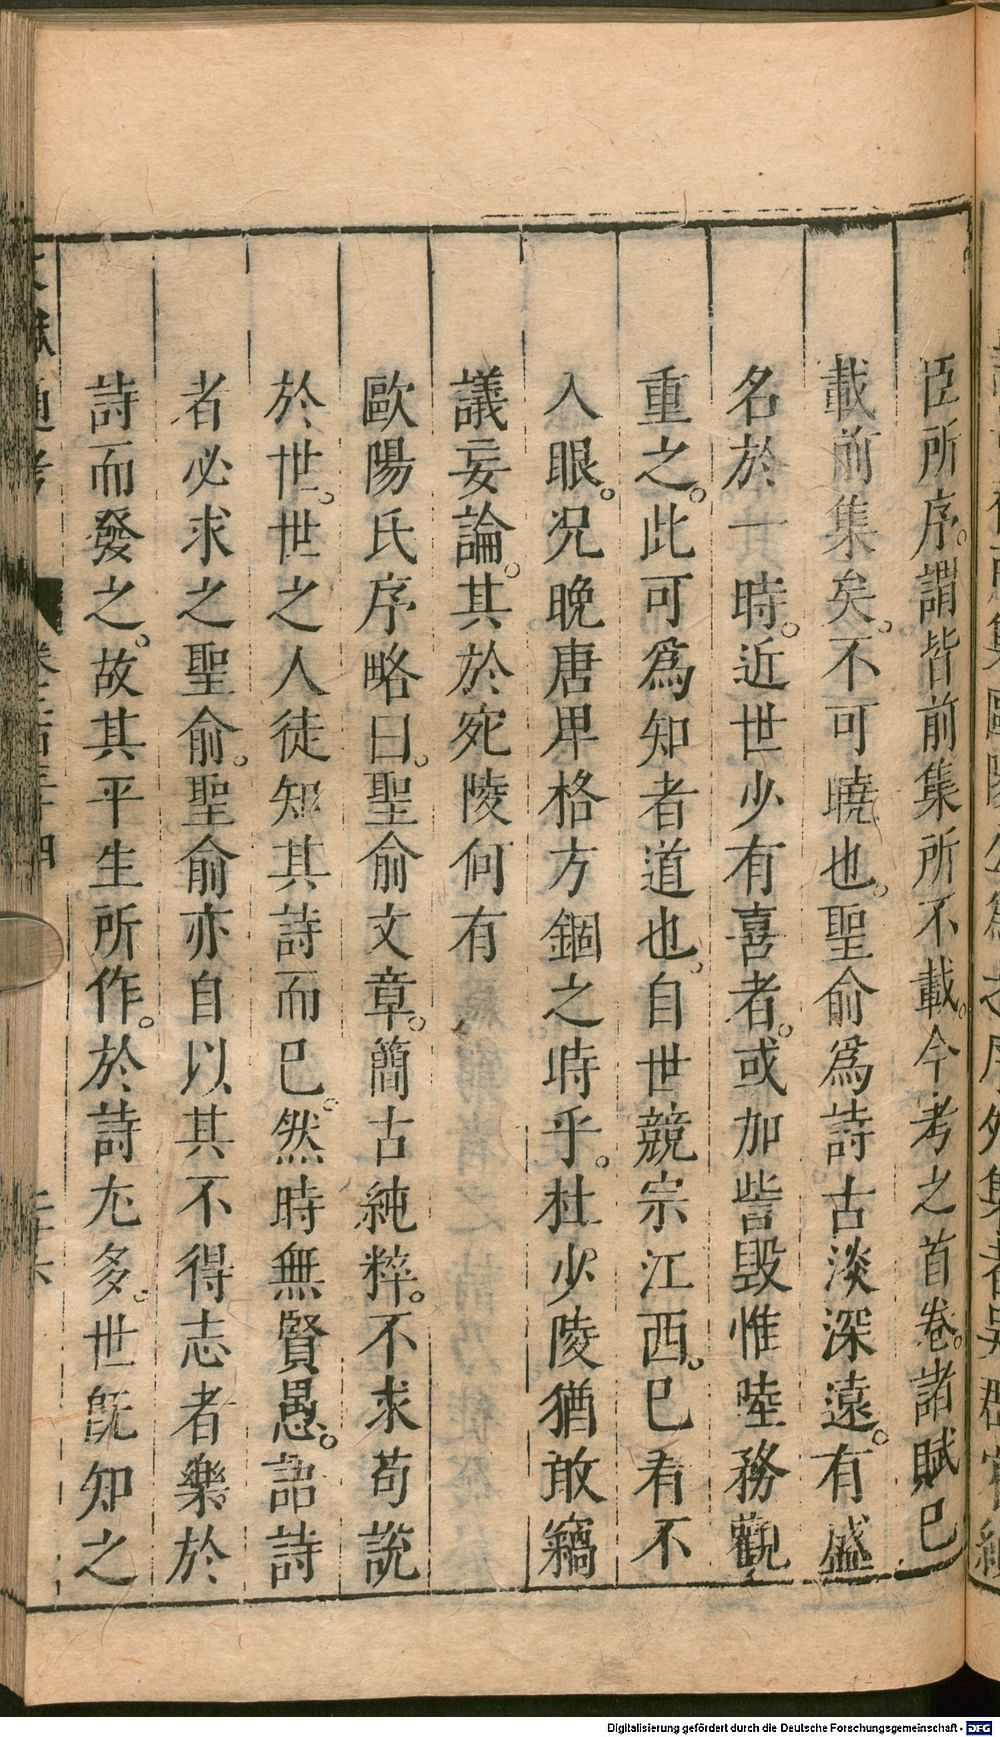 臣所序。謂皆前集所不載。今考之首卷。諸賦已
載前集矣。不可曉也。聖俞爲詩古淡深遠。有盛
名於一時。近世少有喜者。或加訾毀惟陸務觀
重之。此可爲知者道也。自世競宗江西。已看不
入眼。况晚唐卑格方錮之時乎。杜少陵猶敢竊
議妄論。其於宛陵何有
歐陽氏序略曰。聖俞文章。簡古純粹。不求苟說
於世。世之人徒知其詩而已。然時無賢愚。語詩
者必求之聖俞。聖俞亦自以其不得志者樂於
詩而發之。故其平生所作。於詩尤多。世既知之
通考
Digitalisierung gefördert durch die Deutsche Forschungsgemeinschaft - DFG